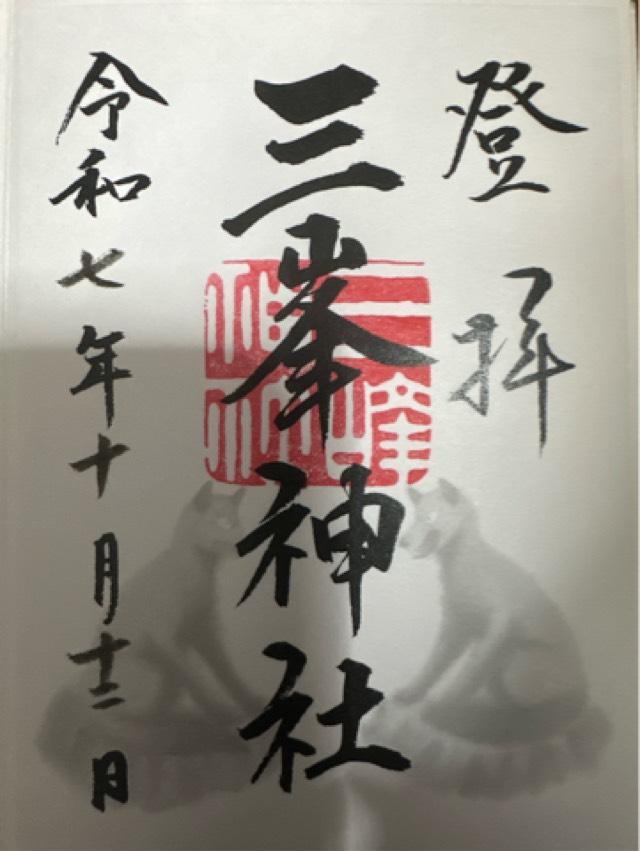 登拝
三峯神社
令和七年十月十二日